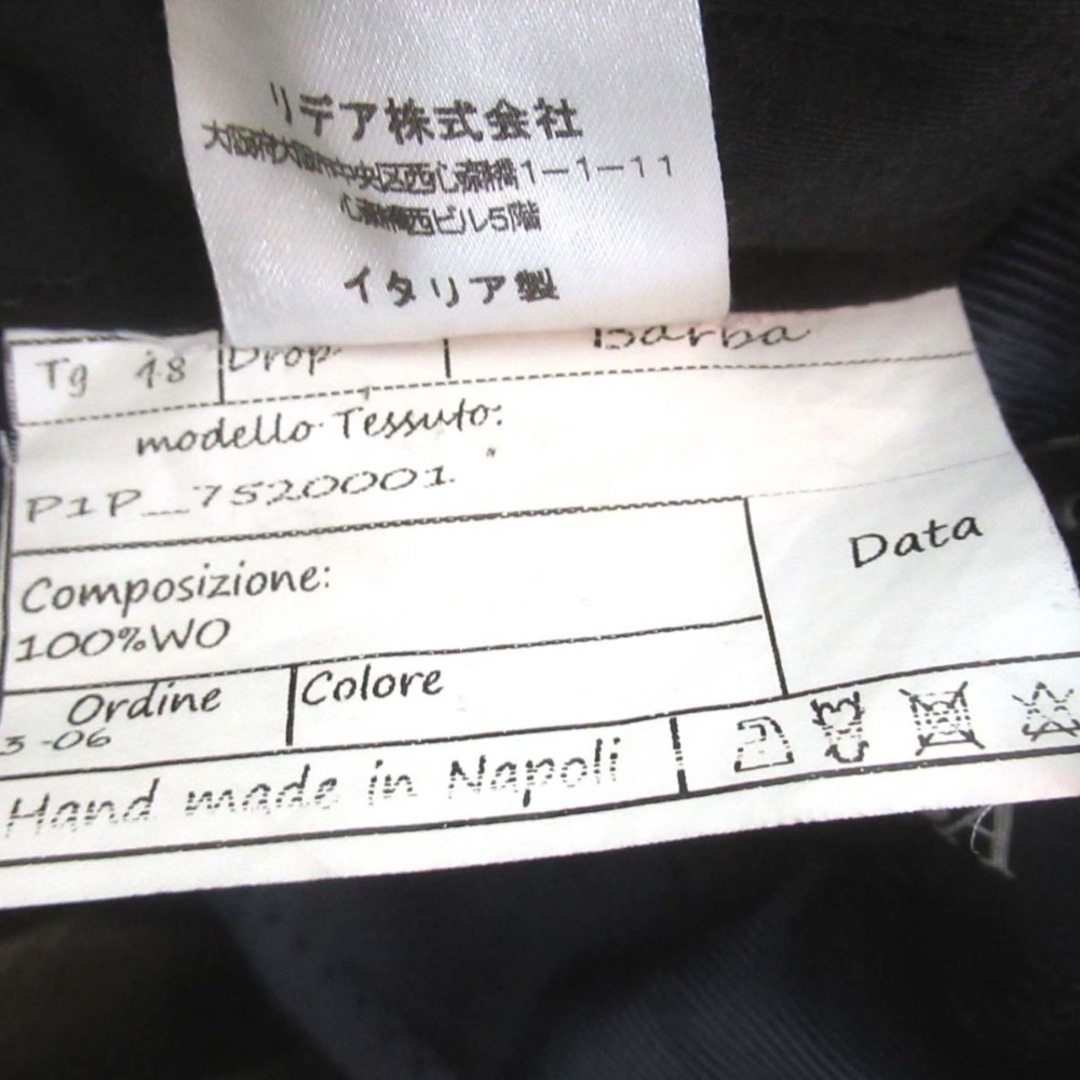 リデア株式会社
大阪府大阪市中央区西心斎橋1-1-11
心斎橋西ビル5階
イタリア製
Tg 48 Drop Barba
modello Tessuto:
P1P_7520001
Composizione:
100%WO
Data
Ordine Colore
3-06
Hand made in Napoli